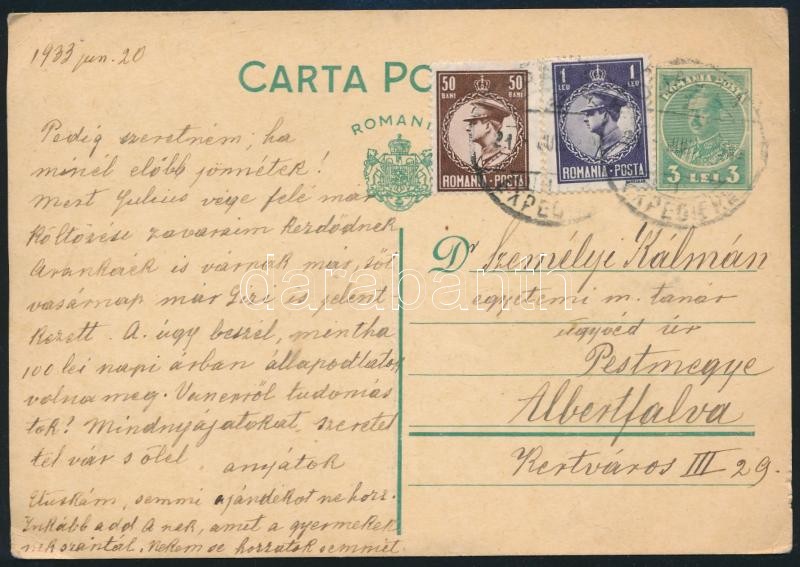 1933 jun. 20
CARTA PO
ROMANI
50 BANI 50 BANI
ROMANIA-POSTA
1 LEU 1 LEU
ROMANIA-POSTA
ROMANIA POSTA
3 LEI 3
21
EXPED
EXPEDIERE
Pedig szeretném, ha
minél előbb jönnétek!
Mert Julius vége felé már
költözési zavaraim kezdődnek
Arankáék is várnak más, sőt
vasárnap már Gizi is jelent
kezett. A. úgy beszel, mintha
100 lei napi árban állapodtatok
volna meg. tudomás
tok? Mindnyájatokat szeretet
tel vár s ölel
anyátok
Etuskám, semmi ajándékot ne hozz.
Inkább add A nek, amit a gyermekek
nek szántál. Nekem se hozzatok semmit.
Dr Személyi Kálmán
egyetemi m. tanár
ügyvéd úr
Pestmegye
Albertfalva
Kertváros III 29.
darabanth